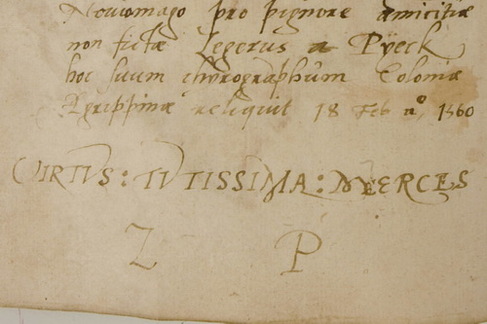 Noviomago pro pignore amicitiæ
non fictæ Legerus a Pÿeck
hoc suum chyrographûm Coloniæ
Agrippinæ reliquit 18 Feb aº, 1560
VIRTVS : TVTISSIMA : MERCES
Z P